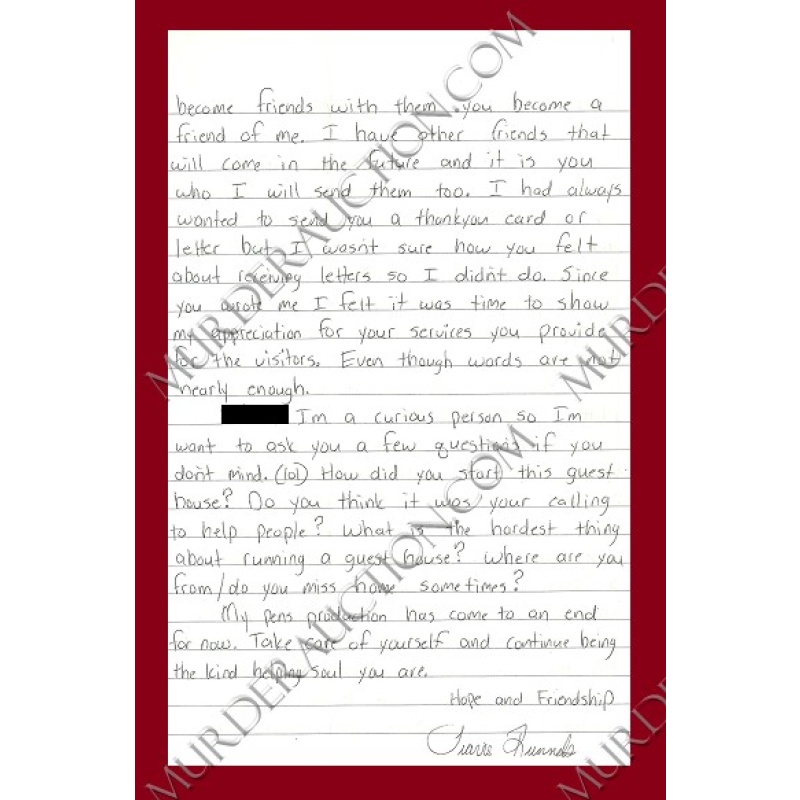 become friends with them you become a
friend of me. I have other friends that
will come in the future and it is you
who I will send them too. I had always
wanted to send you a thankyou card or
letter but I wasn't sure how you felt
about receiving letters so I didn't do. Since
you wrote me I felt it was time to show
my appreciation for your services you provide
for the visitors. Even though words are not
nearly enough.
I'm a curious person so I'm
want to ask you a few questions if you
don't mind. (lol) How did you start this guest
house? Do you think it was your calling
to help people? What is the hardest thing
about running a guest house? Where are you
from/do you miss home sometimes?
My pens production has come to an end
for now. Take care of yourself and continue being
the kind helping soul you are.
Hope and Friendship
Travis Runnels
MURDERAUCTION.COM
MURDERAUCTION.COM